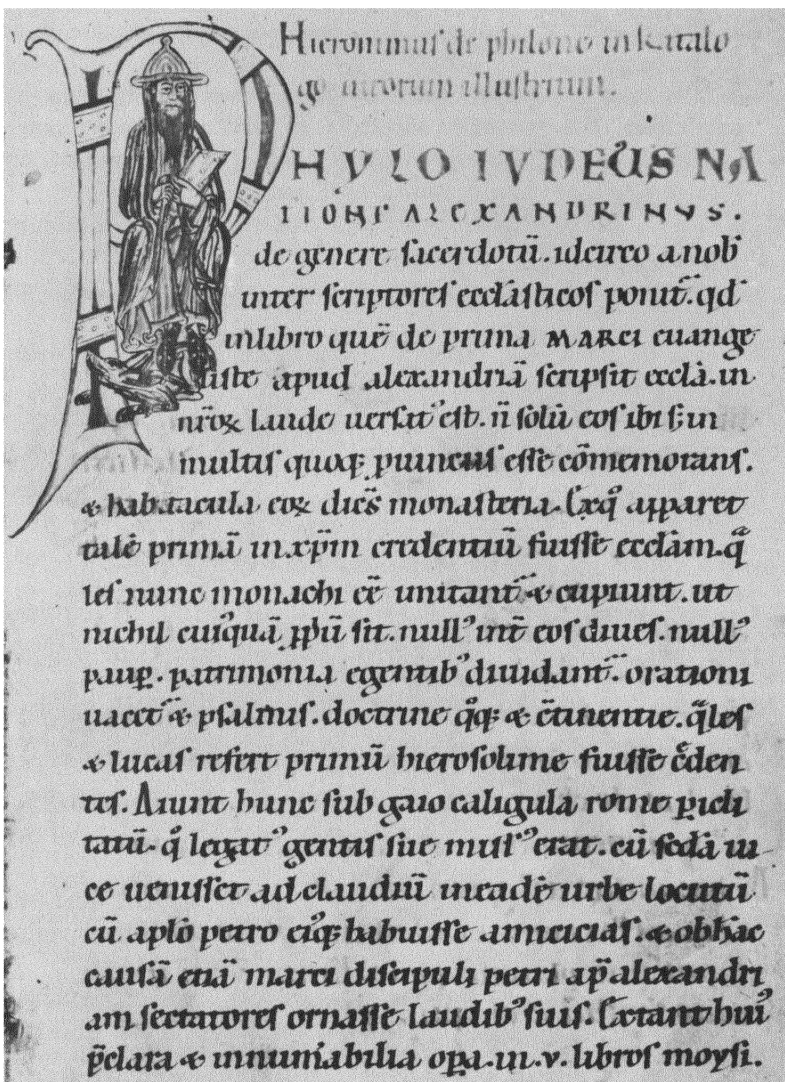 Hieronimus de philone in katalo
go uirorum illustrium.
PHYLO IVDEUS NA
TIONE ALEXANDRINVS.
de genere sacerdotū. idcirco a nob̄
inter scriptores eccl̄asticos ponit᷑. qd̄
in libro quē de prima MARCI euange
liste apud alexandriā scripsit eccl̄a. in
nr̄oꝝ laude uersat᷑ est. n̄ solū eos ibi ſ; in
multis quoq; ꝓuinciis esse cōmemorans.
& habitacula eoꝝ dicēs monasteria. Ex qͦ apparet
talē primā in xp̄m credentiū fuisse eccl̄am. qͣ
les nunc monachi eē imitant᷑ & cupiunt. ut
nichil cuiꝰquā ꝓpū sit. nullꝰ int̄ eos diues. nullꝰ
paup̄. patrimonia egentibꝰ diuidant᷑. orationi
uacet᷑ & psalmis. doctrine qͦq; & ɔ̄tinentie. qͣles
& lucas refert primū hierosolime fuisse c̄den
tes. Aiunt hunc sub gaio caligula rome ꝑicli
tatū. qͦ legatꝰ gentis sue missꝰ erat. cū sed̄a ui
ce uenisset ad claudiū in eadē urbe locutū
cū apl̄o petro eiꝰq; habuisse amicicias. & ob hāc
causā etiā marci discipuli petri ap̄ alexandri
am sectatores ornasse laudibꝰ suis. Extant huiꝰ
p̄clara & innum̄abilia oꝑa. in .v. libros moysi.